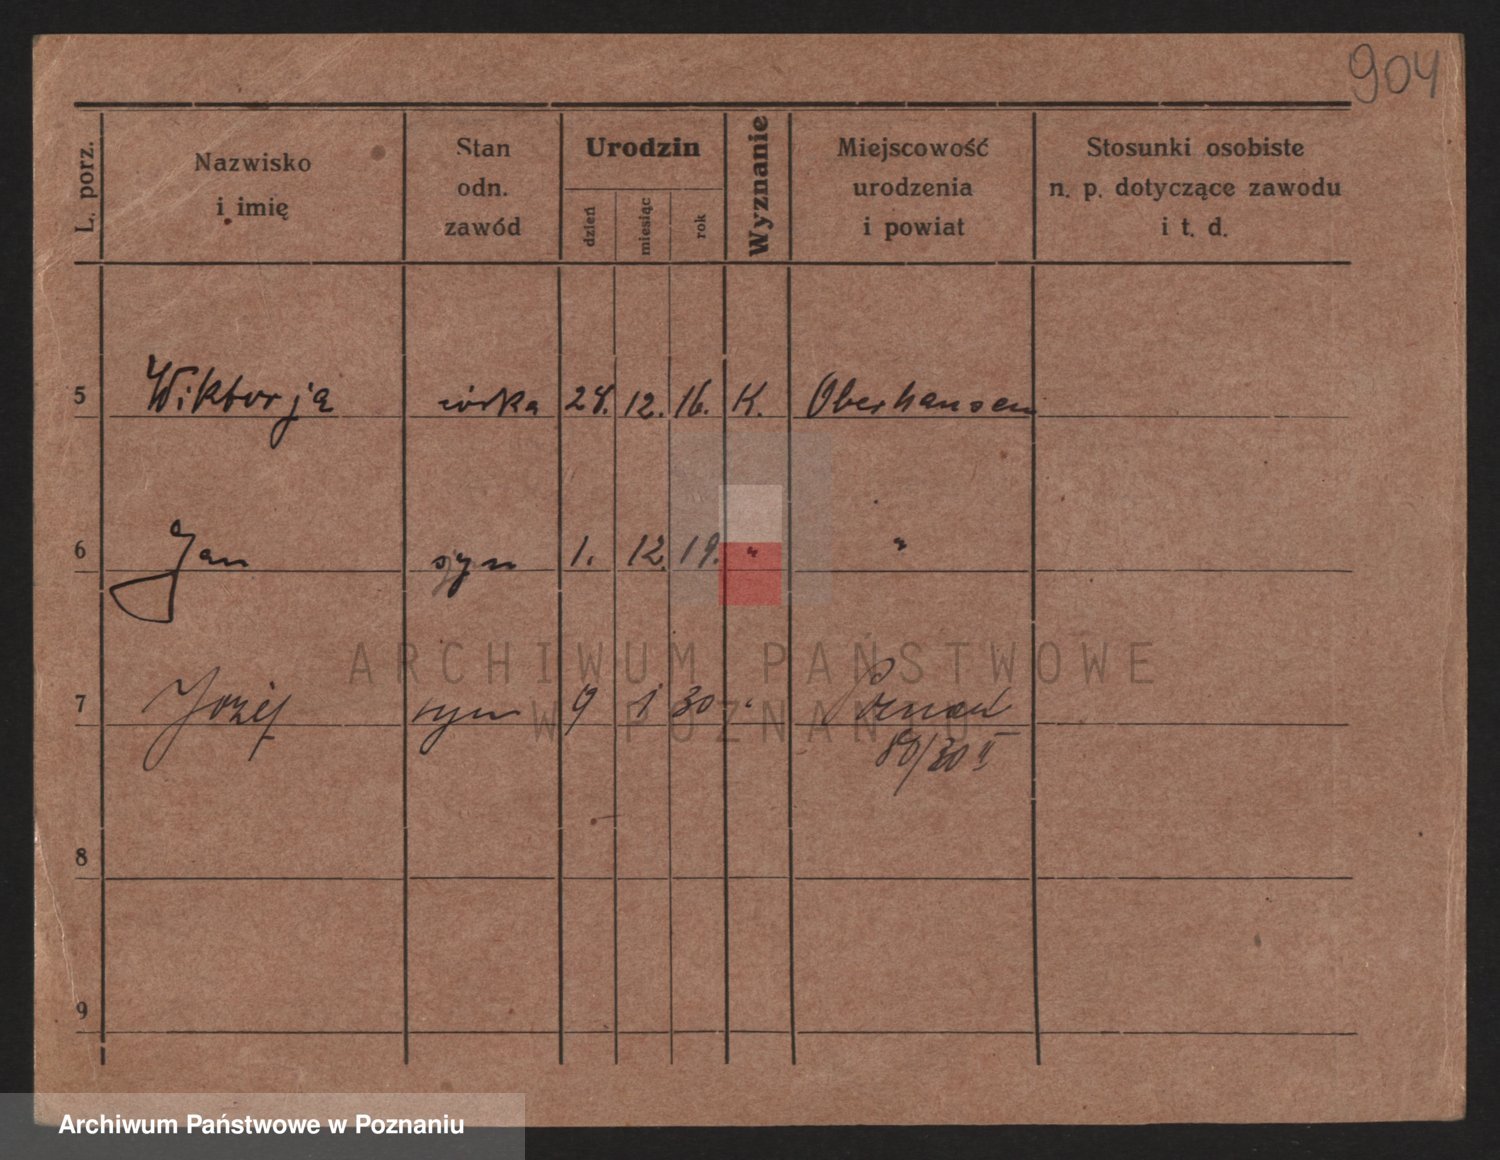 904
L. porz.
Nazwisko
i imię
Stan
odn.
zawód
Urodzin
dzień
miesiąc
rok
Wyznanie
Miejscowość
urodzenia
i powiat
Stosunki osobiste
n. p. dotyczące zawodu
i t. d.
5 Wiktorja córka 28. 12. 16. K. Oberhausen
6 Jan syn 1. 12. 19. " "
7 Józef syn 9 1 30 " Poznań
80/30 II
8
9
ARCHIWUM PAŃSTWOWE
W POZNANIU
Archiwum Państwowe w Poznaniu